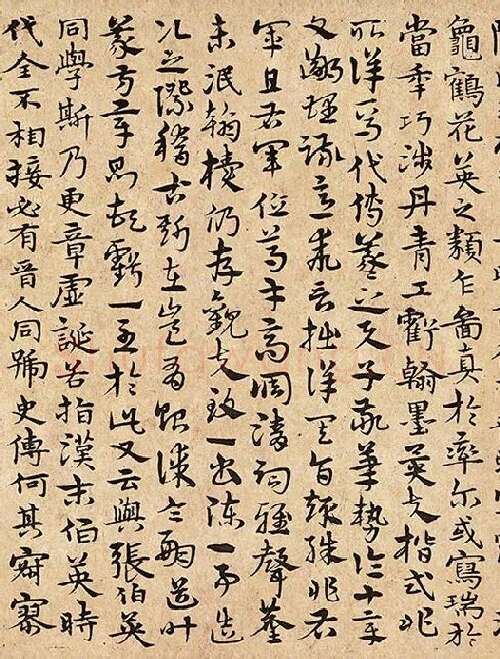 龜鶴花英之類乍圖真於率尔或寫瑞於
當年巧涉丹青工虧翰墨異夫楷式非
所詳焉代傳羲之与子敬筆勢論十章
文鄙理疏意乖言拙詳其旨趣殊非右
軍且右軍位重才高調清詞雅聲塵
未泯翰牘仍存觀夫致一書陳一事造
次之際稽古斯在豈有貽謀令嗣道叶
義方章則頓虧一至於此又云與張伯英
同學斯乃更章虛誕若指漢末伯英時
代全不相接必有晉人同號史傳何其寂寥